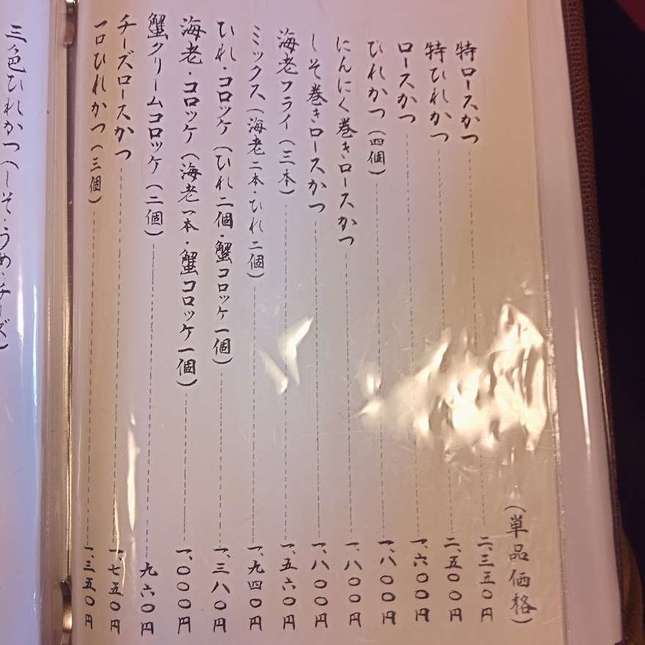 (単品価格)
特ロースかつ 二、三五〇円
特ひれかつ 二、五〇〇円
ロースかつ 一、六〇〇円
ひれかつ(四個) 一、八〇〇円
にんにく巻きロースかつ 一、八〇〇円
しそ巻きロースかつ 一、八〇〇円
海老フライ(三本) 一、五六〇円
ミックス(海老二本・ひれ二個) 一、九四〇円
ひれ・コロッケ(ひれ二個・蟹コロッケ一個) 一、三八〇円
海老・コロッケ(海老一本・蟹コロッケ一個) 一、〇〇〇円
蟹クリームコロッケ(二個) 九六〇円
チーズロースかつ 一、七五〇円
一口ひれかつ(三個) 一、三五〇円
三色ひれかつ(しそ・うめ・チーズ)